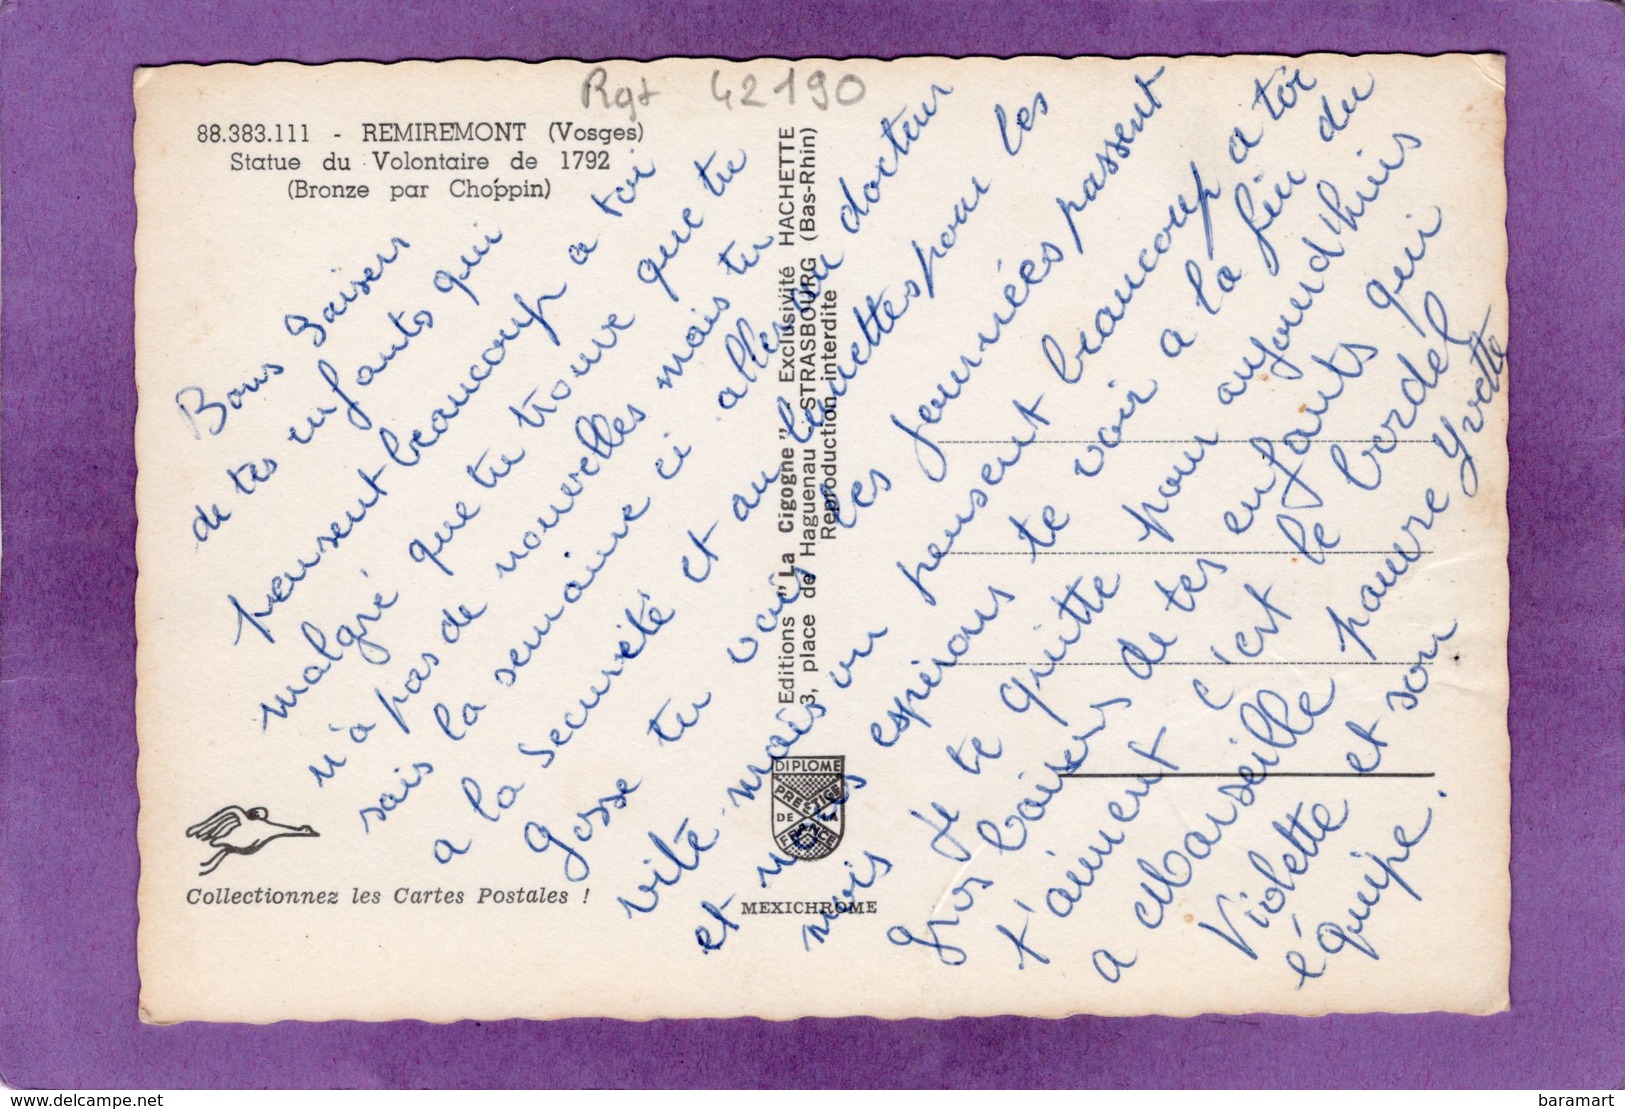 Rgt 42190
88.383.111 - REMIREMONT (Vosges)
Statue du Volontaire de 1792
(Bronze par Choppin)
Bons Baisers
de tes enfants qui
pensent beaucoup a toi
malgré que tu trouve que tu
n'à pas de nouvelles mais tu
sais la semaine ci aller au docteur
a la securité et au lunettes pour les
Gosse tu vois les journées passent
vite mais on pensent beaucoup a toi
et nous espérons te voir a la fin du
mois Je te quitte pour aujourd'huis
Gros baisers de tes enfants qui
t'aiment c'est le bordel
a Marseille pauvre Yvette
Violette et son
équipe.
Editions "La Cigogne" - Exclusivité HACHETTE
3, place de Haguenau - STRASBOURG (Bas-Rhin)
Reproduction interdite
DIPLOME
PRESTIGE
DE LA
FRANCE
MEXICHROME
Collectionnez les Cartes Postales !
https://www.delcampe.net
baramart